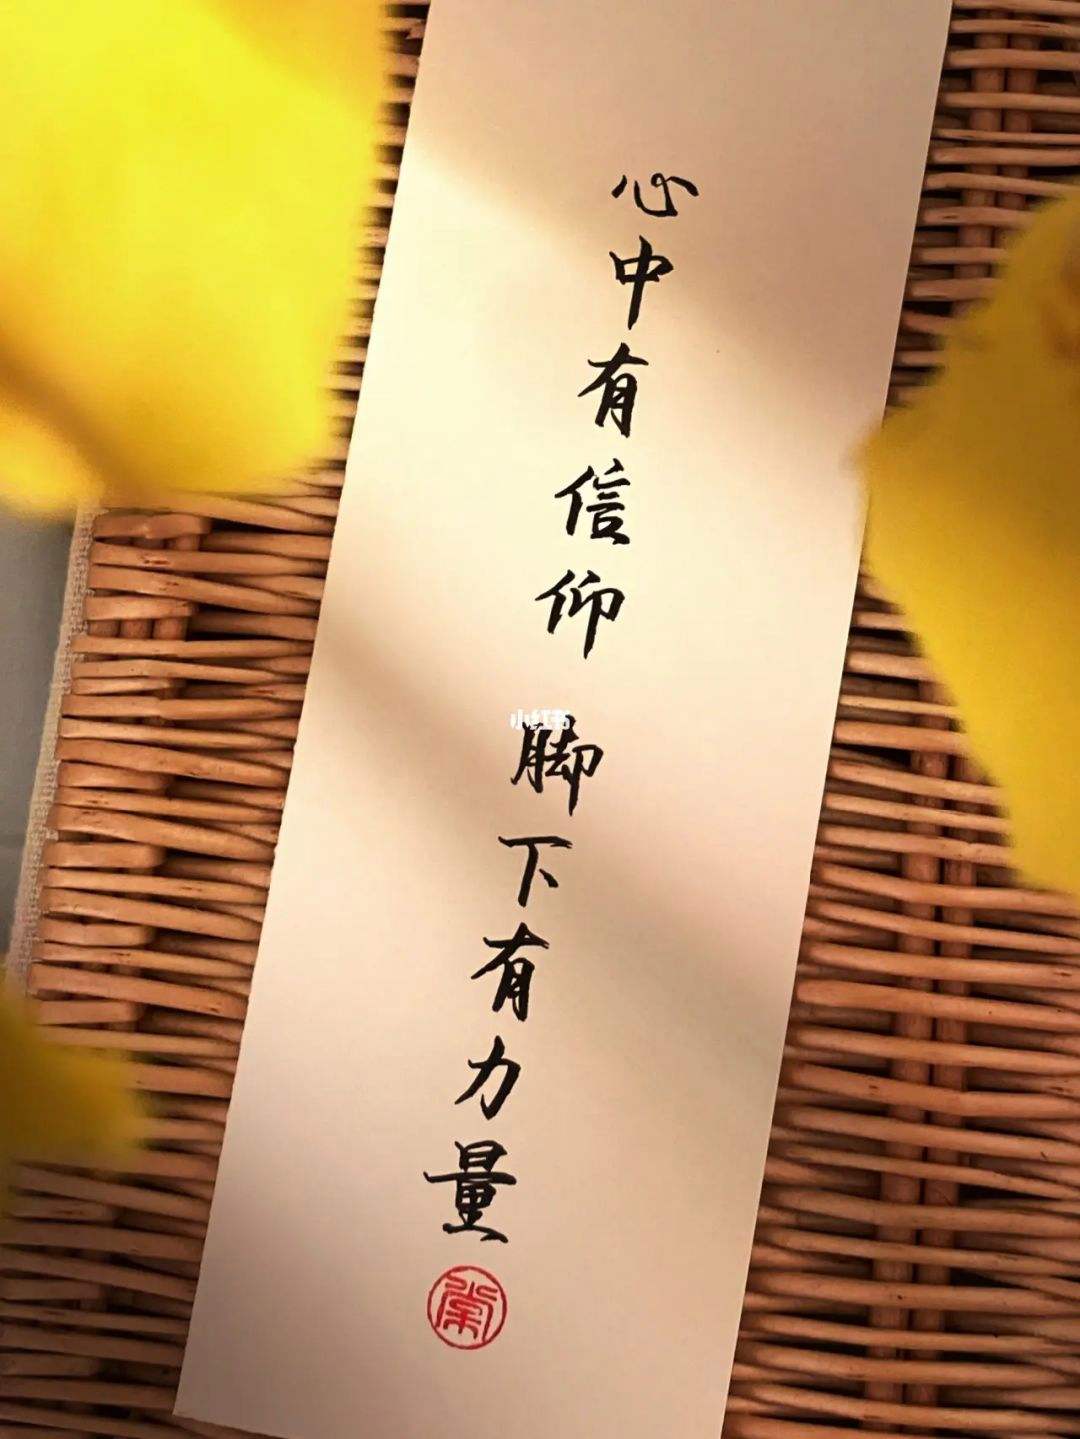 心中有信仰 脚下有力量
小红书